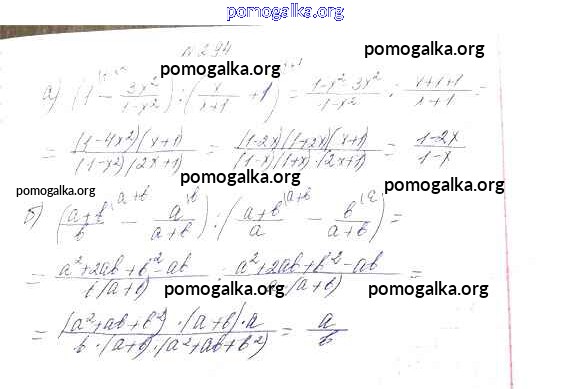 pomogalka.org
№ 294
pomogalka.org pomogalka.org
а) (1 - 3x²/(1-x²)) : (x/(x+1) + 1) = (1-x²-3x²)/(1-x²) : (x+x+1)/(x+1) =
pomogalka.org pomogalka.org
= (1-4x²)(x+1)/((1-x²)(2x+1)) = (1-2x)(1+2x)(x+1)/((1-x)(1+x)·(2x+1)) = (1-2x)/(1-x)
pomogalka.org pomogalka.org pomogalka.org
б) ((a+b)/b - a/(a+b)) : ((a+b)/a - b/(a+b)) =
= (a²+2ab+b²-ab)/(b(a+b)) : (a²+2ab+b²-ab)/(a(a+b)) =
pomogalka.org pomogalka.org
= (a²+ab+b²)·(a+b)·a/(b·(a+b)·(a²+ab+b²)) = a/b